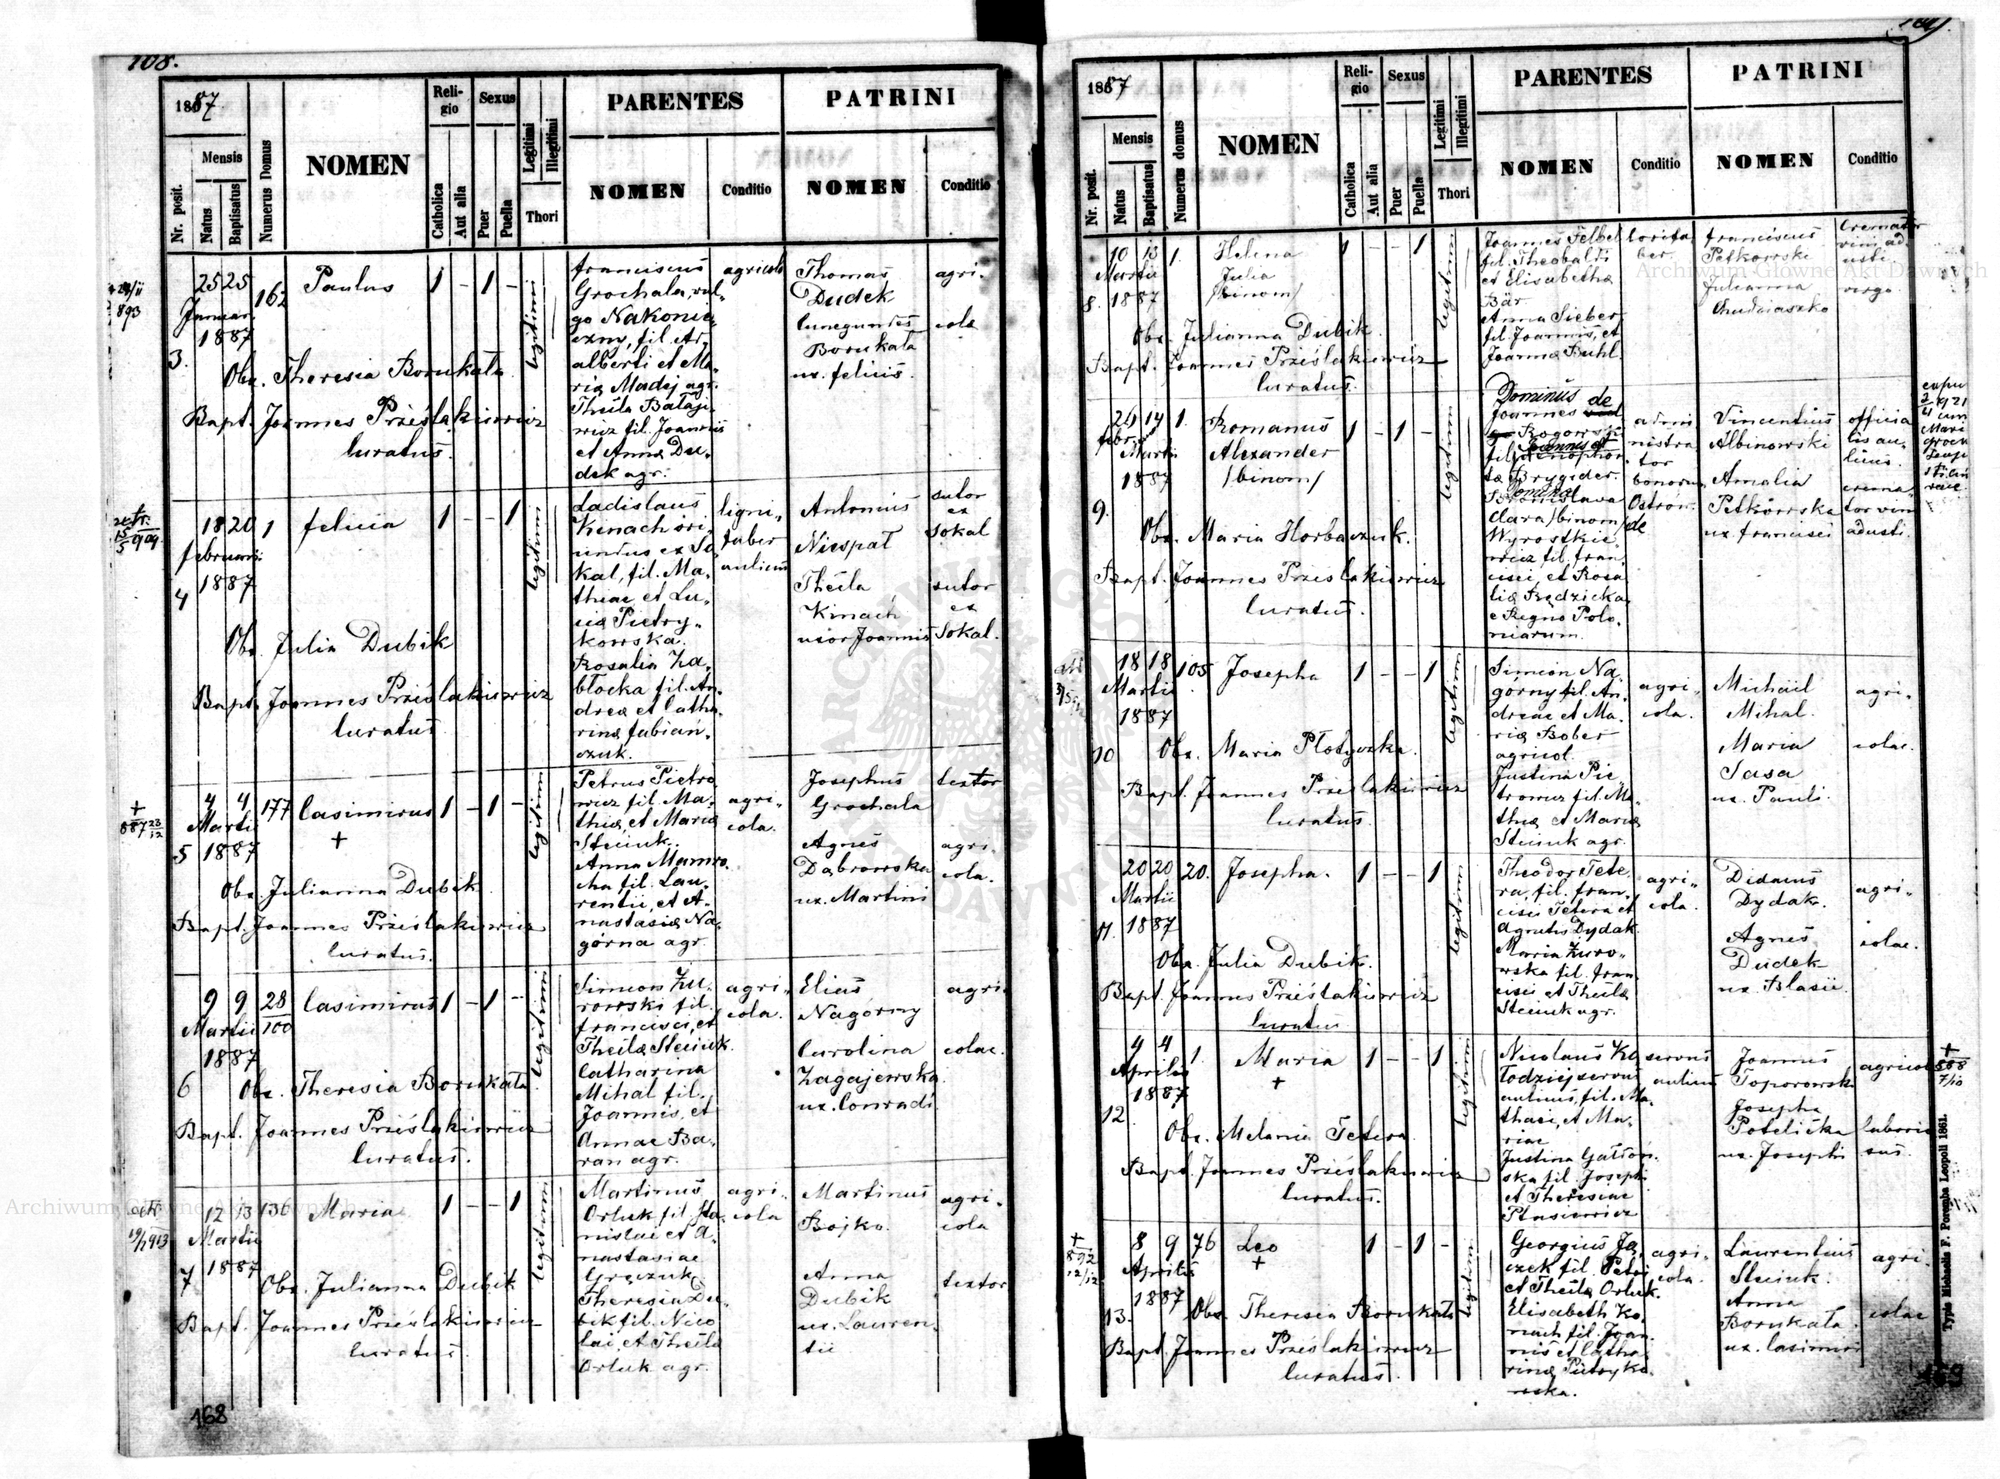 108.
1887
Nr. posit.
Mensis
Natus
Baptisatus
Numerus Domus
NOMEN
Reli-
gio
Catholica
Aut alia
Sexus
Puer
Puella
Legitimi
Illegitimi
Thori
PARENTES
NOMEN
Conditio
PATRINI
NOMEN
Conditio
893
3.
25 25
Januar.
1887
162
Paulus
1 - 1 -
legitimi
Obs. Theresia Borukata
Bapt. Joannes Prześlakiewicz
Curatus.
Franciscus
Grochala, vul-
go Nakonie-
czny, fil. At
alberti et Ma-
ria Madej agr.
Thecla Bałaje-
wicz fil. Joannis
et Anna Du-
dek agr.
agricola
Thomas
Dudek
Cunegundes
Borukata
ux. Felicis.
agri-
cola
4
18 20
Februarii
1887
1
Felicia
1 - - 1
legitimi
Obs. Julia Dubik
Bapt. Joannes Prześlakiewicz
Curatus
Ladislaus
Kinach ori-
undus ex So
kal, fil. Ma-
theae, et Lu-
cia Pietry-
kowska.
Rosalia Za-
błocka fil. An-
drea et Catha-
rina Fabian-
czuk.
ligni-
faber
aulicus
Antonius
Niespał
Thecla
Kinach
uxor Joannis
sutor
ex
Sokal
sutor
ex
Sokal.
+
887 23/12
5
4 4
Martii
1887
177
Casimirus
+
1 - 1 -
legitimi
Obs. Julianna Dubik
Bapt. Joannes Prześlakiewicz
Curatus.
Petrus Pietro
wicz fil. Ma-
thia, et Maria
Steciuk.
Anna Mamro
cha fil. Lau-
rentii, et A-
nastasia Na-
górna agr.
agri-
cola.
Josephus
Grochala
Agnes
Dąbrowska
ux. Martini
textor
agri-
cola.
6
9 9
Martii
1887
28
100
Casimirus
1 - 1 -
legitimi
Obs. Theresia Borukata
Bapt. Joannes Prześlakiewicz
Curatus.
Simeon Żu-
rowski fil.
Francisci, et
Thecla Steciuk.
Catharina
Mihal fil.
Joannis, et
Annae Ba-
ran agr.
agri-
cola.
Elias
Nagórny
Carolina
Zagajewska
ux. Conradi
agri-
colae.
7
12 13
Martii
1887
136
Maria
1 - - 1
legitimi
Obs. Julianna Dubik
Bapt. Joannes Prześlakiewicz
Curatus.
Martinus
Orluk fil. Sta-
nislai et A-
nastasiae
Theresia Du-
bik fil. Nico
lai, et Thecla
Orluk agr.
agri-
cola
Martinus
Bojko.
Anna
Dubik
ux. Lauren-
tii
agri-
cola
textor
168
109.
1887
Nr. posit.
Mensis
Natus
Baptisatus
Numerus domus
NOMEN
Reli-
gio
Catholica
Aut alia
Sexus
Puer
Puella
Legitimi
Illegitimi
Thori
PARENTES
NOMEN
Conditio
PATRINI
NOMEN
Conditio
8.
10 13
Martii
1887
1.
Helena
Julia
/binom/
1 - - 1
legitimi
Obs. Julianna Dubik.
Bapt. Joannes Prześlakiewicz
Curatus.
Joannes Felbel
fil. Theobaldi
et Elisabetha
Bär
Anna Sieber
fil. Joannis, et
Joanna Buhl.
Franciscus
Petkowski
Julianna
Chudziaszko
cremator
vini ad-
usti.
virgo.
9.
26 14
Febr. Martii
1887
1.
Romanus
Alexander
/binom/
1 - 1 -
legitimi
Obs. Maria Horbaczuk.
Bapt. Joannes Prześlakiewicz
Curatus.
Dominus de
Joannes
Rogowski
fil. Joannis et
Bronislava
Clara /binom/
Wyrostkie-
wicz fil. Fran-
cisci, et Rosa
lia Kędzicka,
e Regno Polo-
niarum.
admi
nistra
tor
bonorum
Ostrów-
de
Vincentius
Albinowski
Amalia
Petkowska
ux. Francisci
officia
lis au-
licus.
crema-
tor vini
adusti.
10
18 18
Martii
1887
105
Josepha
1 - - 1
legitimi
Obs. Maria Płotyczka.
Bapt. Joannes Prześlakiewicz
Curatus.
Simeon Na-
górny fil. An-
dreae et Ma-
ria Bober
agricol.
Justina Pie-
trowicz fil. Ma-
thia et Maria
Steciuk agr.
agri-
cola.
Michael
Mihal.
Maria
Sasa
ux. Pauli.
agri-
colae.
11.
20 20
Martii
1887
20.
Josepha.
1 - - 1
legitimi
Obs. Julia Dubik.
Bapt. Joannes Prześlakiewicz
Curatus
Theodor Tete-
ra, fil. Fran-
cisci Tetera et
Agnetis Dydak
Maria Żuro-
wska fil. Fran-
cisci et Thecla
Steciuk agr.
agri-
cola.
Didacus
Dydak.
Agnes
Dudek
ux. Blasii.
agri-
colae.
12.
4 4
Aprilis
1887
1.
Maria
+
1 - - 1
legitimi
Obs. Melania Tetera
Bapt. Joannes Prześlakiewicz
Curatus.
Nicolaus Ko
łodziej servus
aulicus, fil. Ma-
thaei, et Ma-
riae
Justina Gątkow-
ska fil. Josephi
et Theresiae
Ptasiewicz
servus
aulicus
Joannes
Toporowski
Josepha
Potelicka
ux. Josephi
agricola
laborio
sus.
+
7/10
+
892
12/12
13.
8 9
Aprilis
1887
76
Leo
+
1 - 1 -
legitimi
Obs. Theresia Borukata
Bapt. Joannes Prześlakiewicz
Curatus.
Georgius Ja-
czek fil. Petri
et Thecla Orluk.
Elisabeth Ko-
nach fil. Joan-
nis et Catha-
rina Pietryko-
wska.
agri-
cola.
Laurentius
Steciuk.
Anna
Borukata
ux. Casimiri
agri-
colae
Typis Michaelis F. Poremba Leopoli 1861.
169
Archiwum Główne Akt Dawnych
Archiwum Główne Akt Dawnych
ARCHIWUM GŁÓWNE AKT DAWNYCH